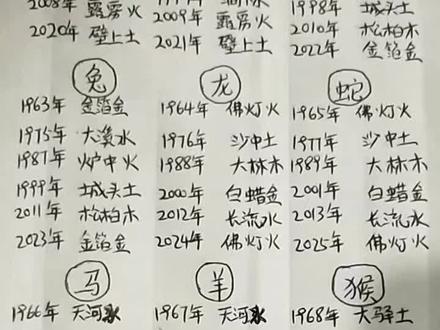 2008年 霹雳火
2009年 霹雳火
1998年 城头土
2010年 松柏木
2020年 壁上土
2021年 壁上土
2022年 金箔金
兔
龙
蛇
1963年 金箔金
1964年 佛灯火
1965年 佛灯火
1975年 大溪水
1976年 沙中土
1977年 沙中土
1987年 炉中火
1988年 大林木
1989年 大林木
1999年 城头土
2000年 白蜡金
2001年 白蜡金
2011年 松柏木
2012年 长流水
2013年 长流水
2023年 金箔金
2024年 佛灯火
2025年 佛灯火
马
羊
猴
1966年 天河水
1967年 天河水
1968年 大驿土